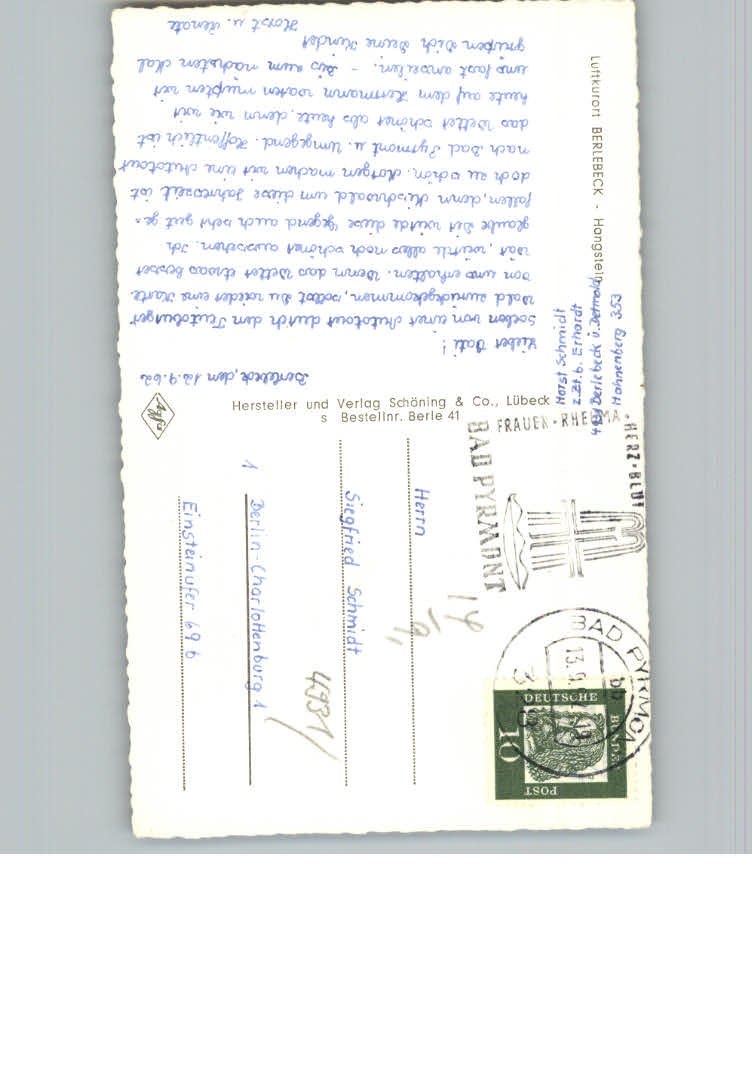 Luftkurort BERLEBECK - Hangstein
Berlebeck, dem 12.9.62
Lieber Vati!
Soeben von einer Autotour durch den Teutoburger
Wald zurückgekommen, sollst Du wieder eine Karte
von uns erhalten. Wenn das Wetter etwas besser
wär, würde alles noch schöner aussehen. Ich
glaube Dir würde diese Gegend auch sehr gut ge-
fallen, denn Mischwald um diese Jahreszeit ist
doch zu schön. Morgen machen wir eine Autotour
nach Bad Pyrmont u. Umgegend. Hoffentlich ist
das Wetter schöner als heute, denn wie wir
heute auf dem Hermann waren mußten wir
uns fast anseilen. - Bis zum nächsten Mal
grüßen Dich Deine Kinder
Horst u. Renate
Horst Schmidt
z.Zt. b. Erhardt
Berlebeck ü. Detmold
Hahnenberg 353
Agfa
Hersteller und Verlag Schöning & Co., Lübeck
s Bestellnr. Berle 41
HERZ-BLUT
FRAUEN-RHEUMA-
BAD PYRMONT
BAD PYRMONT
13.9.62-18
bb
DEUTSCHE
BUNDES
POST
10
Herrn
Siegfried Schmidt
1 Berlin-Charlottenburg 1
Einsteinufer 69b
4931/